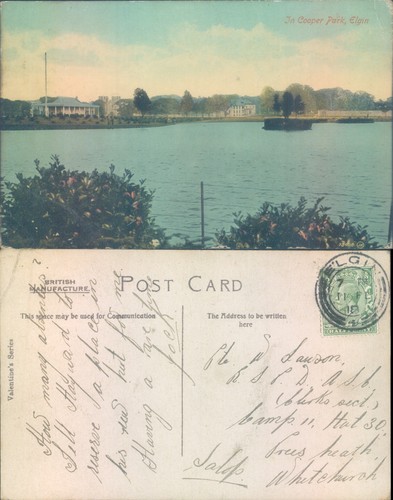 In Cooper Park, Elgin
BRITISH
MANUFACTURE.
POST CARD
This space may be used for Communication
The Address to be written
here
Valentine's Series
ELGIN
How many abouts?
Tell to
reserve a place in
his bed hut for me
Having a fine
Pte W Lawson
R S P D A.S.C.
(Clerks sect)
Camp 11, Hut 30.
Prees heath,
Whitchurch
Salop.